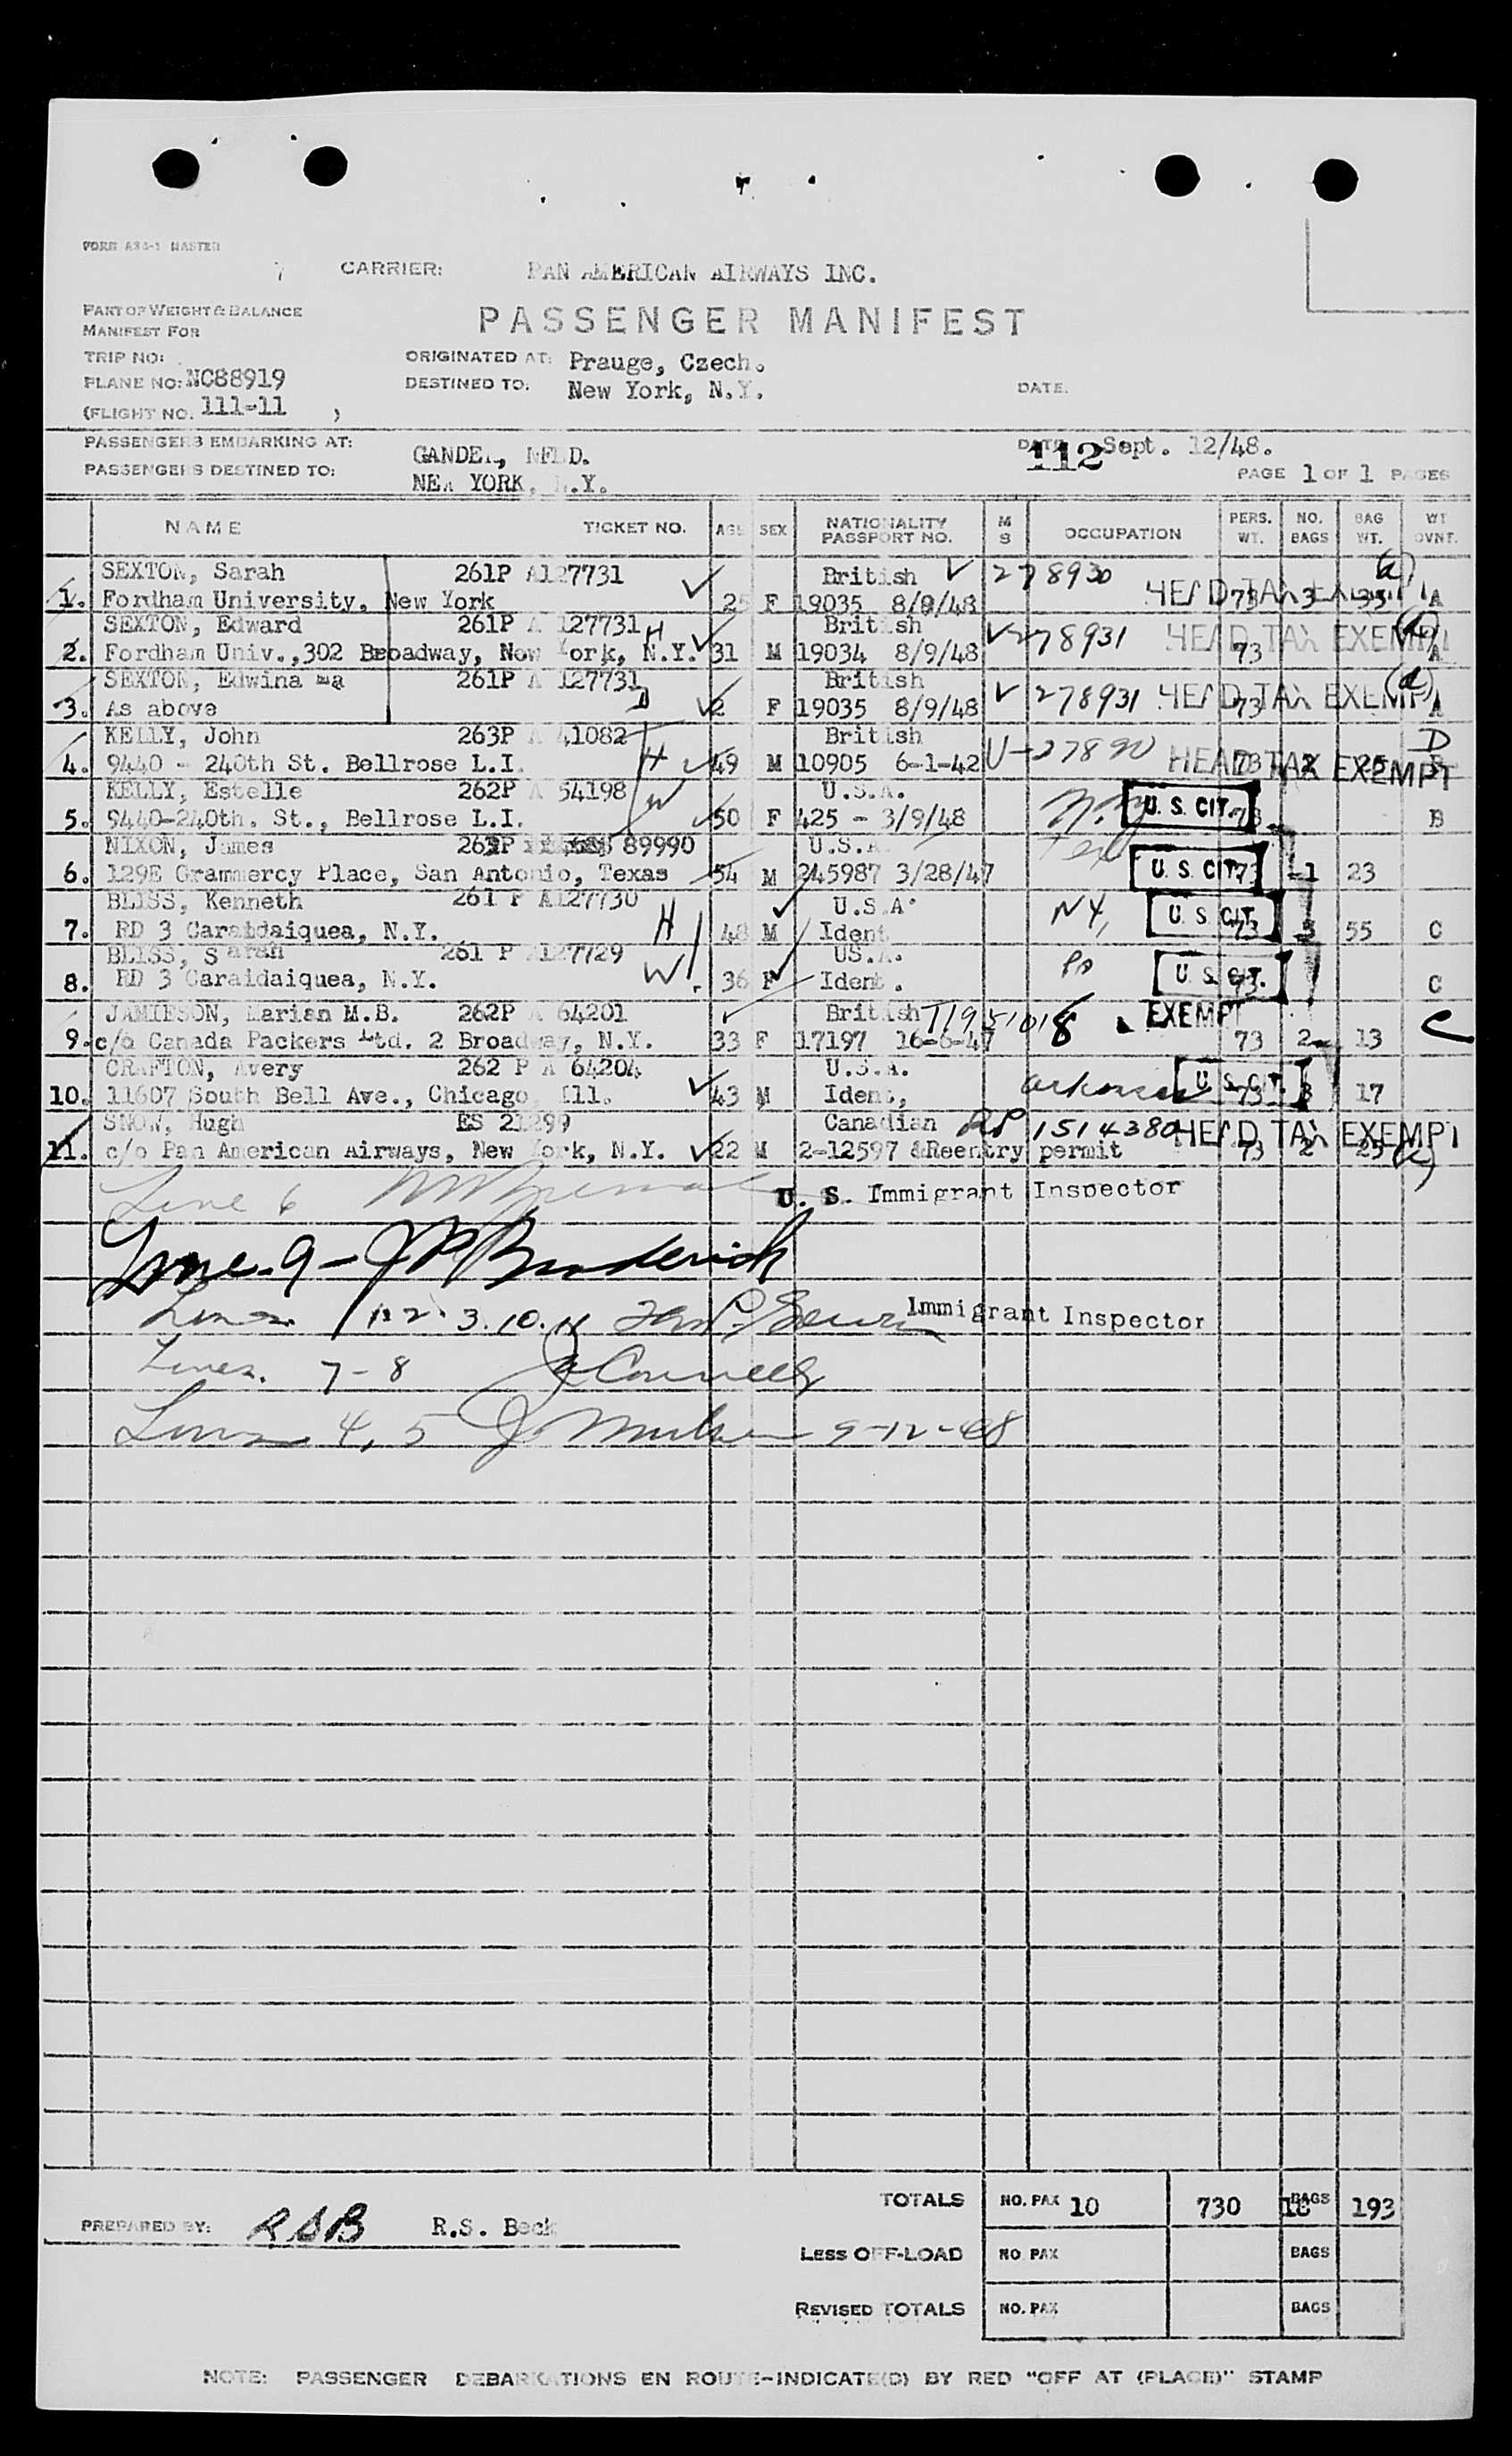 FORM A84-1 MASTER
7 CARRIER: PAN AMERICAN AIRWAYS INC.
PART OF WEIGHT & BALANCE
MANIFEST FOR
PASSENGER MANIFEST
TRIP NO:
ORIGINATED AT: Prauge, Czech.
PLANE NO: NC88919
DESTINED TO: New York, N.Y.
DATE.
(FLIGHT NO. 111-11 )
PASSENGERS EMBARKING AT: GANDER, NFLD.
DATE Sept. 12/48.
112
PASSENGERS DESTINED TO: NEW YORK, N.Y.
PAGE 1 OF 1 PAGES
NAME TICKET NO. AGE SEX NATIONALITY PASSPORT NO. M S OCCUPATION PERS. WT. NO. BAGS BAG WT. WT OVNT.
SEXTON, Sarah 261P A127731 British 278930 (a)
1. Fordham University, New York 25 F 19035 8/9/48 HEAD TAX 73 3 35 A
SEXTON, Edward 261P A 127731 H British 278931 HEAD TAX EXEMPT
2. Fordham Univ.,302 Broadway, New York, N.Y. 31 M 19034 8/9/48 73 A
SEXTON, Edwina 261P A 127731 D British 278931 HEAD TAX EXEMPT (a)
3. As above 2 F 19035 8/9/48 73 A
KELLY, John 263P A 41082 British U-27890 D
4. 9440 - 240th St. Bellrose L.I. H 49 M 10905 6-1-42 HEAD TAX EXEMPT 73 2 25 B
KELLY, Estelle 262P A 54198 W U.S.A.
5. 9440-240th. St., Bellrose L.I. 50 F 425 - 3/9/48 N.Y. U.S. CIT. 73 B
NIXON, James 89990 U.S.A. Tex
6. 129E Grammercy Place, San Antonio, Texas 54 M 245987 3/28/47 U.S. CIT. 73 1 23
BLISS, Kenneth 261 P A127730 H U.S.A. NY, U.S. CIT.
7. RD 3 Caraidaiquea, N.Y. 48 M Ident 73 3 55 C
BLISS, Sarah 261 P A127729 W US.A. Pa U.S. CIT.
8. RD 3 Caraidaiquea, N.Y. 36 F Ident. 73 C
JAMIESON, Marian M.B. 262P A 64201 British EXEMPT
9. c/o Canada Packers Ltd. 2 Broadway, N.Y. 33 F 17197 16-6-47 73 2 13 C
CRAFTON, Avery 262 P A 64204 U.S.A. Arkansas U.S. CIT.
10. 11607 South Bell Ave., Chicago, Ill. 43 M Ident, 73 3 17
SNOW, Hugh ES 21299 Canadian RP 1514380 HEAD TAX EXEMPT
11. c/o Pan American Airways, New York, N.Y. 22 M 2-12597 &Reentry permit 73 2 25
Line 6 U. S. Immigrant Inspector
Line-9- J P Broderick
Lines 1 2. 3. 10. 11 Immigrant Inspector
Lines. 7-8
Lines 4, 5 9-12-48
TOTALS NO. PAX 10 730 BAGS 18 193
PREPARED BY: RSB R.S. Beck
LESS OFF-LOAD NO PAX BAGS
REVISED TOTALS NO. PAX BAGS
NOTE: PASSENGER DEBARKATIONS EN ROUTE-INDICATE(D) BY RED "OFF AT (PLACE)" STAMP